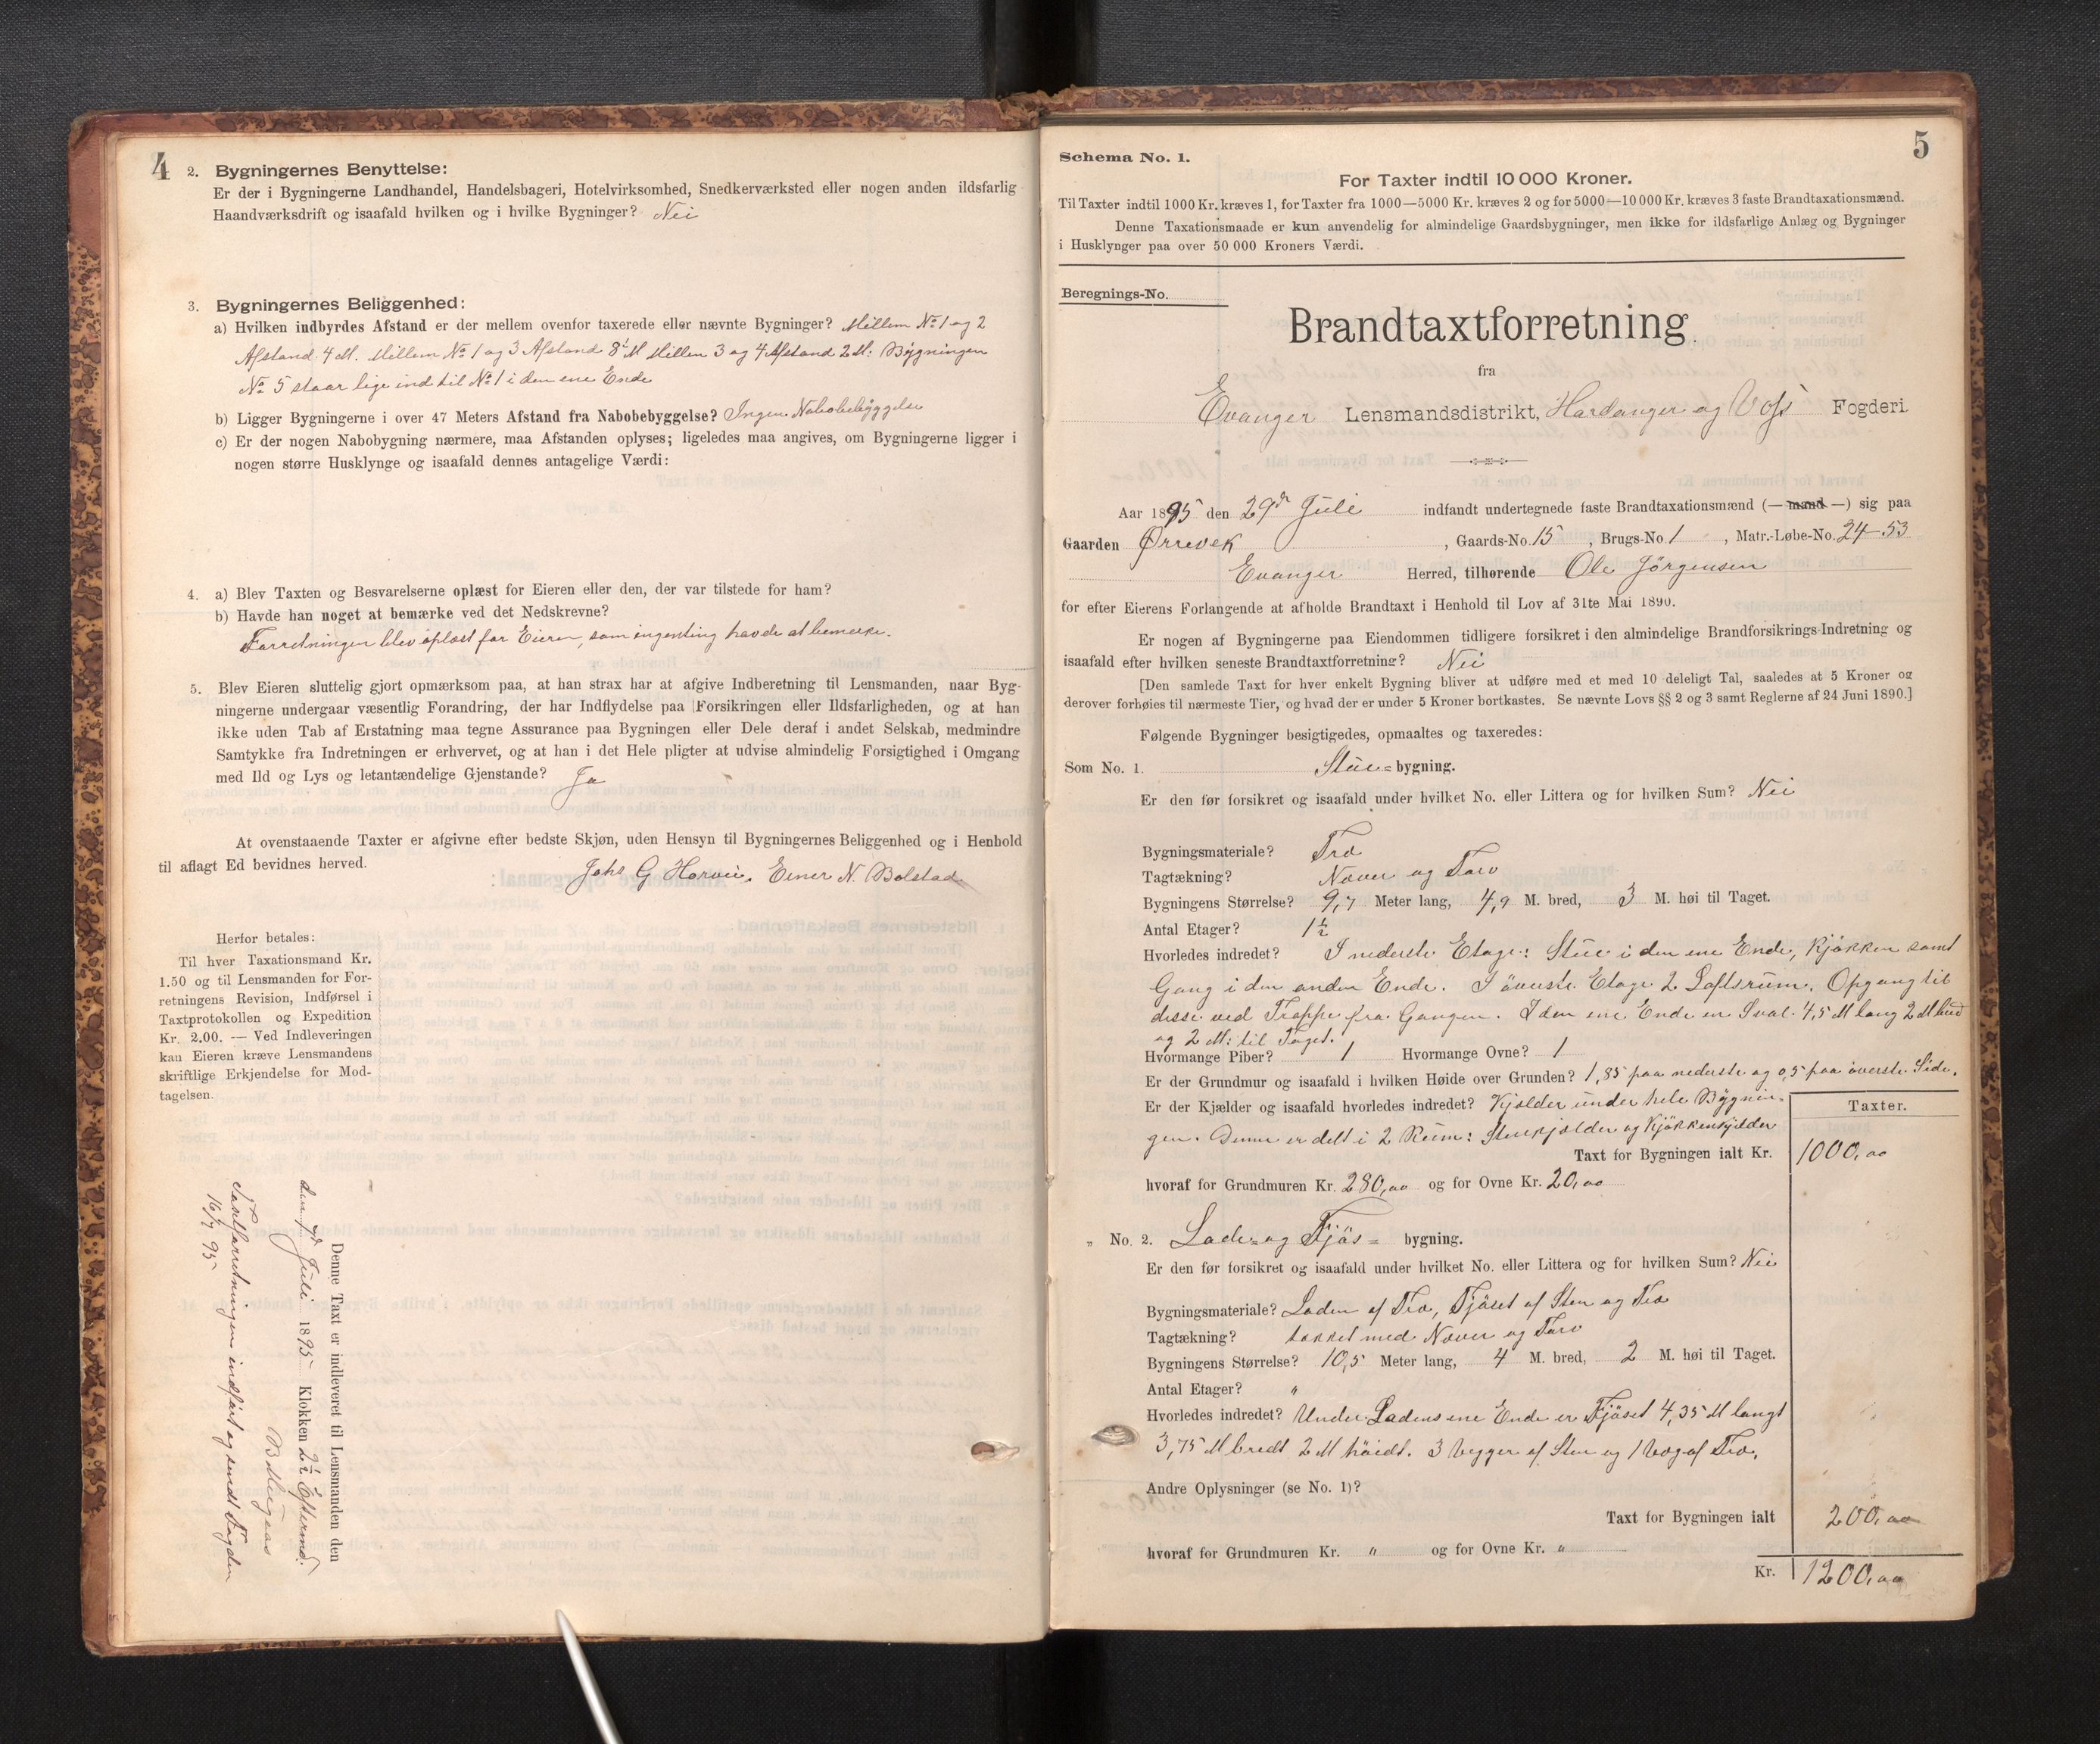 4
2. Bygningernes Benyttelse:
Er der i Bygningerne Landhandel, Handelsbageri, Hotelvirksomhed, Snedkerværksted eller nogen anden ildsfarlig
Haandværksdrift og isaafald hvilken og i hvilke Bygninger? Nei
3. Bygningernes Beliggenhed:
a) Hvilken indbyrdes Afstand er der mellem ovenfor taxerede eller nævnte Bygninger? Mellem No 1 og 2
Afstand 4 M. Mellem No 1 og 3 Afstand 8 M Mellem 3 og 4 Afstand 2 M: Bygningen
No 5 staar lige ind til No 1 i den ene Ende
b) Ligger Bygningerne i over 47 Meters Afstand fra Nabobebyggelse? Ingen Nabobebyggelse
c) Er der nogen Nabobygning nærmere, maa Afstanden oplyses; ligeledes maa angives, om Bygningerne ligger i
nogen større Husklynge og isaafald dennes antagelige Værdi:
4. a) Blev Taxten og Besvarelserne oplæst for Eieren eller den, der var tilstede for ham?
b) Havde han noget at bemærke ved det Nedskrevne?
Forretningen blev oplæst for Eieren, som ingenting havde at bemerke.
5. Blev Eieren sluttelig gjort opmærksom paa, at han strax har at afgive Indberetning til Lensmanden, naar Byg-
ningerne undergaar væsentlig Forandring, der har Indflydelse paa Forsikringen eller Ildsfarligheden, og at han
ikke uden Tab af Erstatning maa tegne Assurance paa Bygningen eller Dele deraf i andet Selskab, medmindre
Samtykke fra Indretningen er erhvervet, og at han i det Hele pligter at udvise almindelig Forsigtighed i Omgang
med Ild og Lys og letantændelige Gjenstande? Ja
At ovenstaaende Taxter er afgivne efter bedste Skjøn, uden Hensyn til Bygningernes Beliggenhed og i Henhold
til aflagt Ed bevidnes herved.
Johs G Horvei. Einer N. Bolstad
Herfor betales:
Til hver Taxationsmand Kr.
1.50 og til Lensmanden for For-
retningens Revision, Indførsel i
Taxtprotokollen og Expedition
Kr. 2.00. — Ved Indleveringen
kan Eieren kræve Lensmandens
skriftlige Erkjendelse for Mod-
tagelsen.
Denne Taxt er indleveret til Lensmanden den
Juli 1895 Klokken 2½ Eftermd.
Taxtforretningen indført og sendt Fogden
16/7 95
5
Schema No. 1.
For Taxter indtil 10 000 Kroner.
Til Taxter indtil 1000 Kr. kræves 1, for Taxter fra 1000—5000 Kr. kræves 2 og for 5000—10 000 Kr. kræves 3 faste Brandtaxationsmænd.
Denne Taxationsmaade er kun anvendelig for almindelige Gaardsbygninger, men ikke for ildsfarlige Anlæg og Bygninger
i Husklynger paa over 50 000 Kroners Værdi.
Beregnings-No.
Brandtaxtforretning
fra
Evanger Lensmandsdistrikt, Hardanger og Voss Fogderi.
Aar 1895 den 29de Juli indfandt undertegnede faste Brandtaxationsmænd (— mand —) sig paa
Gaarden Ørrevek, Gaards-No. 15, Brugs-No 1, Matr.-Løbe-No. 24-53
Evanger Herred, tilhørende Ole Jörgensen
for efter Eierens Forlangende at afholde Brandtaxt i Henhold til Lov af 31te Mai 1890.
Er nogen af Bygningerne paa Eiendommen tidligere forsikret i den almindelige Brandforsikrings-Indretning og
isaafald efter hvilken seneste Brandtaxtforretning? Nei
[Den samlede Taxt for hver enkelt Bygning bliver at udføre med et med 10 deleligt Tal, saaledes at 5 Kroner og
derover forhøies til nærmeste Tier, og hvad der er under 5 Kroner bortkastes. Se nævnte Lovs §§ 2 og 3 samt Reglerne af 24 Juni 1890.]
Følgende Bygninger besigtigedes, opmaaltes og taxeredes:
Som No. 1. Stue= bygning.
Er den før forsikret og isaafald under hvilket No. eller Littera og for hvilken Sum? Nei
Bygningsmateriale? Træ
Tagtækning? Næver og Torv
Bygningens Størrelse? 9,7 Meter lang, 4,9 M. bred, 3 M. høi til Taget.
Antal Etager? 1½
Hvorledes indredet? I nederste Etage: Stue i den ene Ende, Kjøkken samt
Gang i den anden Ende. I överste Etage 2 Loftsrum. Opgang til
disse ved Trappe fra Gangen. I den ene Ende en Sval 4,5 M lang 2 M bred
og 2 M: til Taget.
Hvormange Piber? 1 Hvormange Ovne? 1
Er der Grundmur og isaafald i hvilken Høide over Grunden? 1,85 paa nederste og 0,5 paa överste Side.
Er der Kjælder og isaafald hvorledes indredet? Kjælder under hele Bygnin-
gen. Denne er delt i 2 Rum: Stuekjælder og Kjøkkenkjelder
Taxter.
Taxt for Bygningen ialt Kr. 1000,00
hvoraf for Grundmuren Kr. 280,00 og for Ovne Kr. 20,00
„ No. 2. Lade= og Fjös= bygning.
Er den før forsikret og isaafald under hvilket No. eller Littera og for hvilken Sum? Nei
Bygningsmateriale? Laden af Træ, Fjöset af Sten og Træ
Tagtækning? tækket med Næver og Torv
Bygningens Størrelse? 10,5 Meter lang, 4 M. bred, 2 M. høi til Taget.
Antal Etager? "
Hvorledes indredet? Under Ladens ene Ende er Fjöset 4,35 M langt
3,75 M bredt 2 M höidt. 3 Vægger af Sten og 1 Væg af Træ.
Andre Oplysninger (se No. 1)?
Taxt for Bygningen ialt 200,00
hvoraf for Grundmuren Kr. " og for Ovne Kr. "
Kr. 1200,00